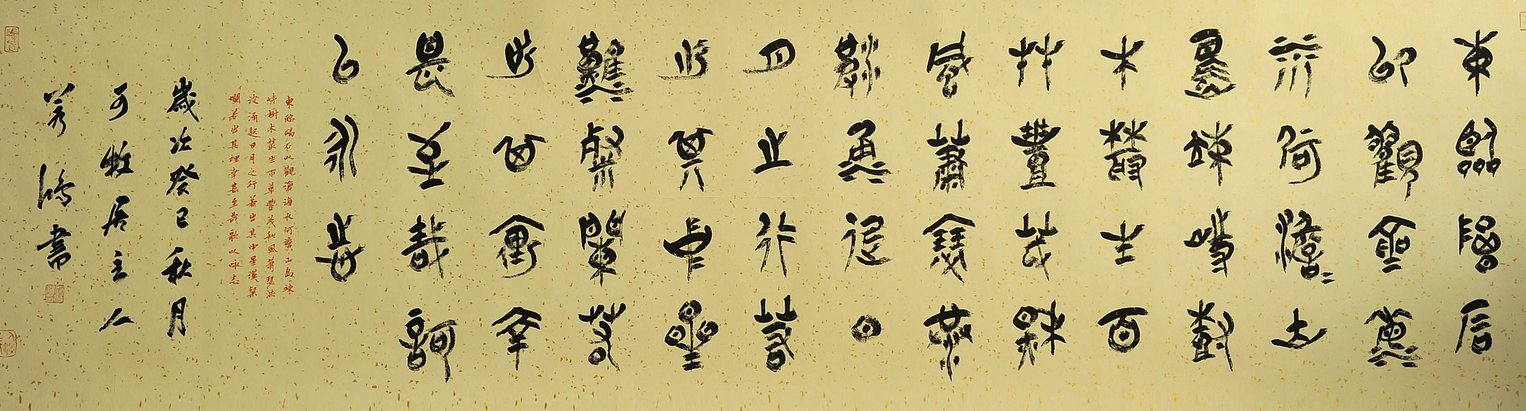 東臨碣石
以觀滄海
水何澹〻山
島竦峙樹
木叢生百
草豐茂秋
風蕭瑟洪
波涌起日
月之行若
出其中星
漢燦爛若
出其裡幸
甚至哉歌
以詠志
東臨碣石以觀滄海水何澹〻山島竦
峙樹木叢生百草豐茂秋風蕭瑟洪
波涌起日月之行若出其中星漢燦
爛若出其裡幸甚至哉歌以詠志
歲次癸巳秋月
可牧居主人
若鴻書